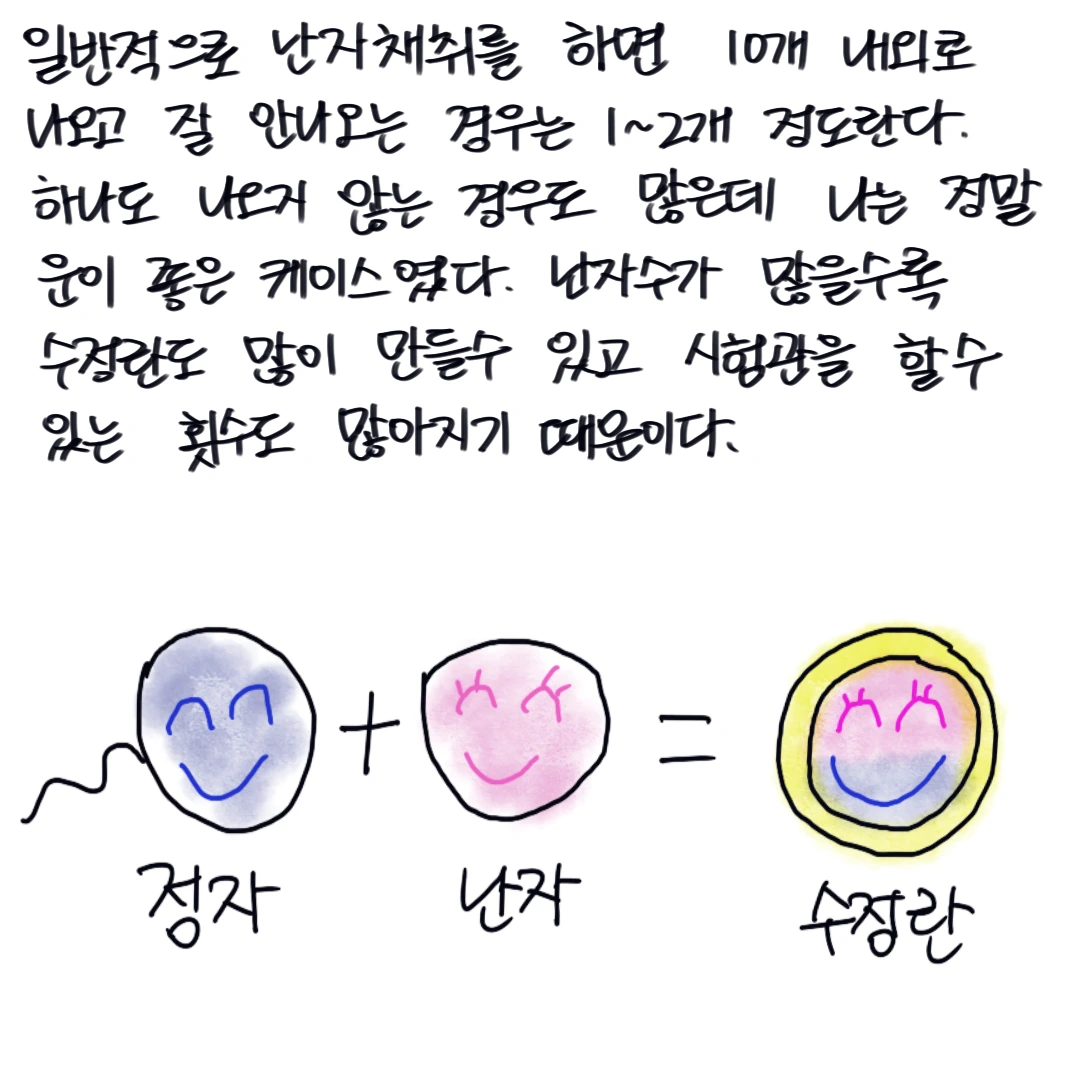 일반적으로 난자채취를 하면 10개 내외로
나오고 잘 안나오는 경우는 1~2개 정도란다.
하나도 나오지 않는 경우도 많은데 나는 정말
운이 좋은 케이스였다. 난자수가 많을수록
수정란도 많이 만들수 있고 시험관을 할수
있는 횟수도 많아지기 때문이다.
정자 + 난자 = 수정란